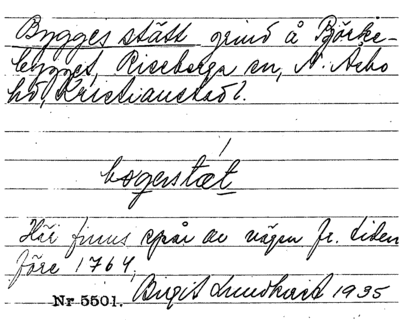 Bygges stätt grind å Björke-
bygget, Riseberga sn, N. Åsbo
hd, Kristianstads l.
bøgerstæt
Här finns spår av vägen fr. tiden
före 1764,
Nr 5501. Birgit Lundkvist 1935